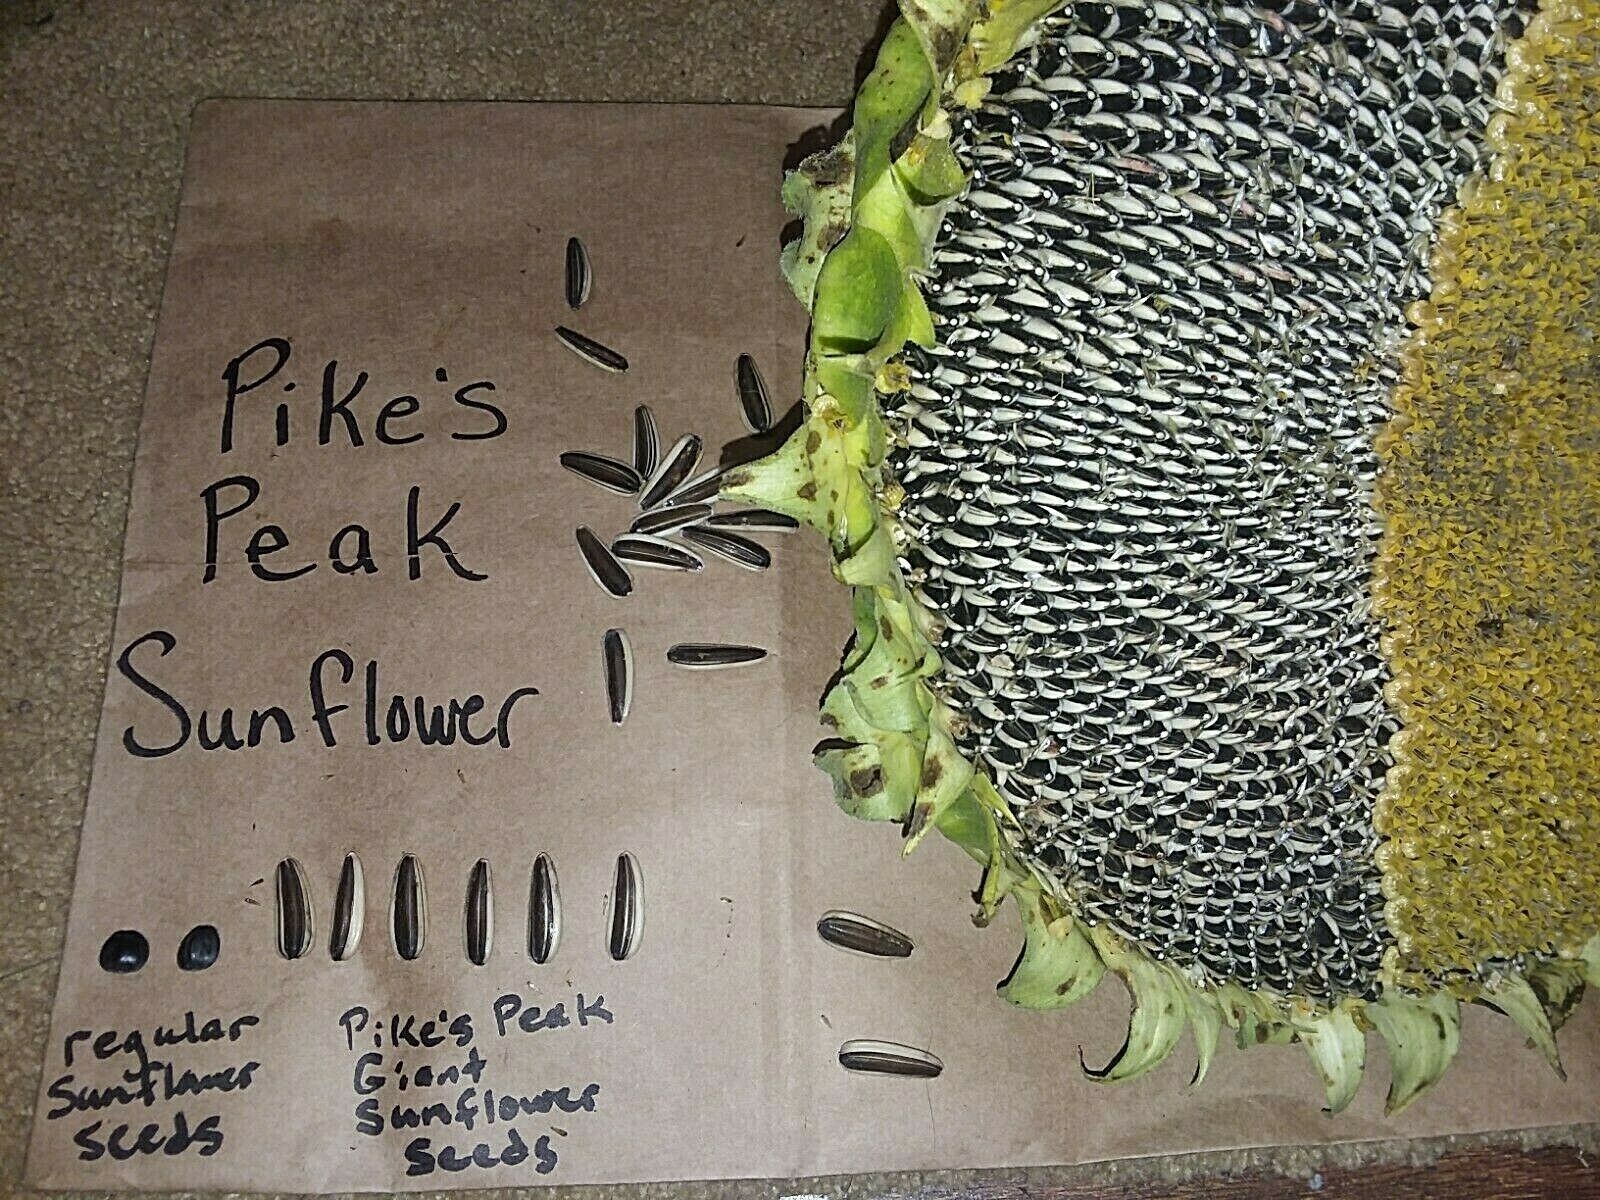 Pike's
Peak
Sunflower
regular
Sunflower
seeds
Pike's Peak
Giant
Sunflower
Seeds